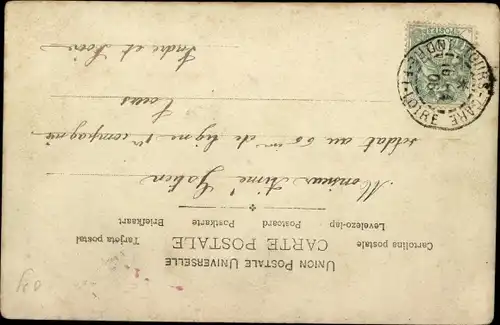 UNION POSTALE UNIVERSELLE
CARTE POSTALE
Cartolina postale Levelezo-lap Postcard Postkarte Briefkaart Tarjeta postal
Monsieur Aimé
soldat au 66 me de ligne 1r compagnie
Tours
Indre et Loire
TOURS-GARE
INDRE-ET-LOIRE
POSTES